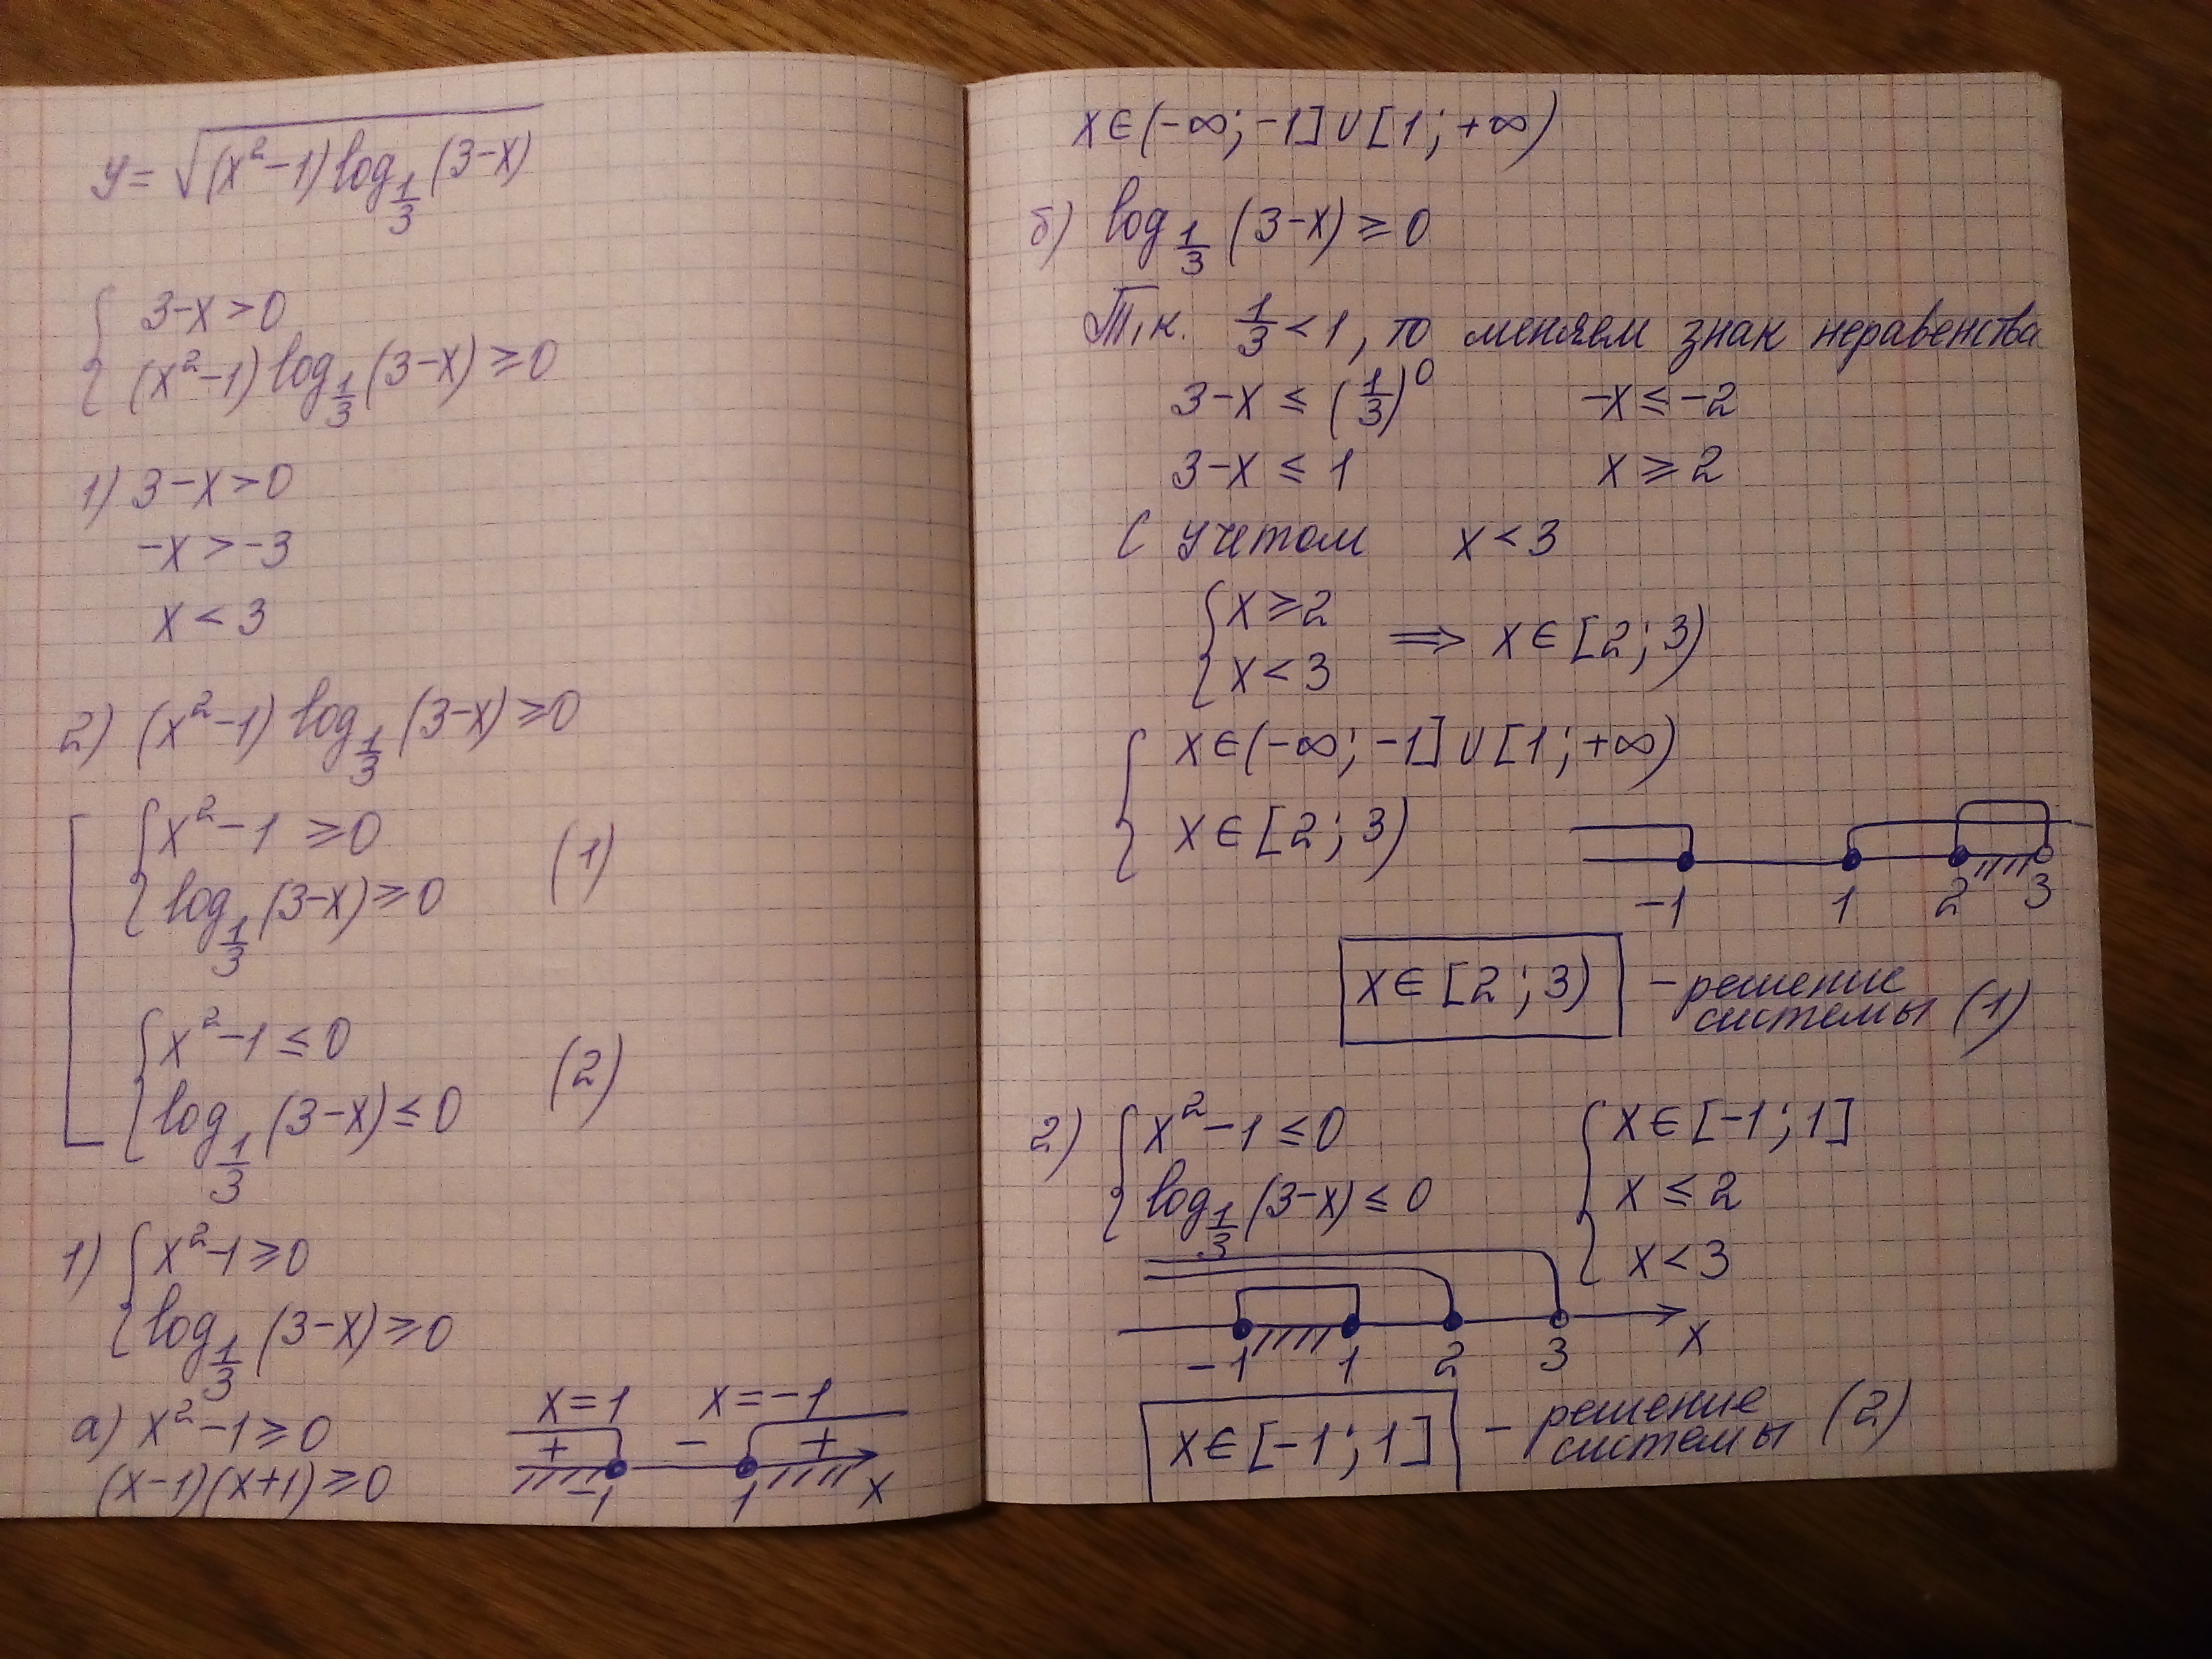 y = √((x²-1) log_{1/3} (3-x))
{ 3-x>0
{ (x²-1) log_{1/3} (3-x) ≥ 0
1) 3-x>0
-x > -3
x < 3
2) (x²-1) log_{1/3} (3-x) ≥ 0
[ { x²-1 ≥ 0
{ log_{1/3} (3-x) ≥ 0 (1)
{ x²-1 ≤ 0
{ log_{1/3} (3-x) ≤ 0 (2)
1) { x²-1 ≥ 0
{ log_{1/3} (3-x) ≥ 0
а) x²-1 ≥ 0
(x-1)(x+1) ≥ 0
x=1 x=-1
+ - +
-1 1 x
x ∈ (-∞; -1] ∪ [1; +∞)
б) log_{1/3} (3-x) ≥ 0
Т.к. 1/3 < 1, то меняем знак неравенства
3-x ≤ (1/3)^0 -x ≤ -2
3-x ≤ 1 x ≥ 2
С учетом x < 3
{ x ≥ 2
{ x < 3 ⟹ x ∈ [2; 3)
{ x ∈ (-∞; -1] ∪ [1; +∞)
{ x ∈ [2; 3)
-1 1 2 3
x ∈ [2; 3) - решение
системы (1)
2) { x²-1 ≤ 0 { x ∈ [-1; 1]
{ log_{1/3} (3-x) ≤ 0 { x ≤ 2
{ x < 3
-1 1 2 3 x
x ∈ [-1; 1] - решение
системы (2)